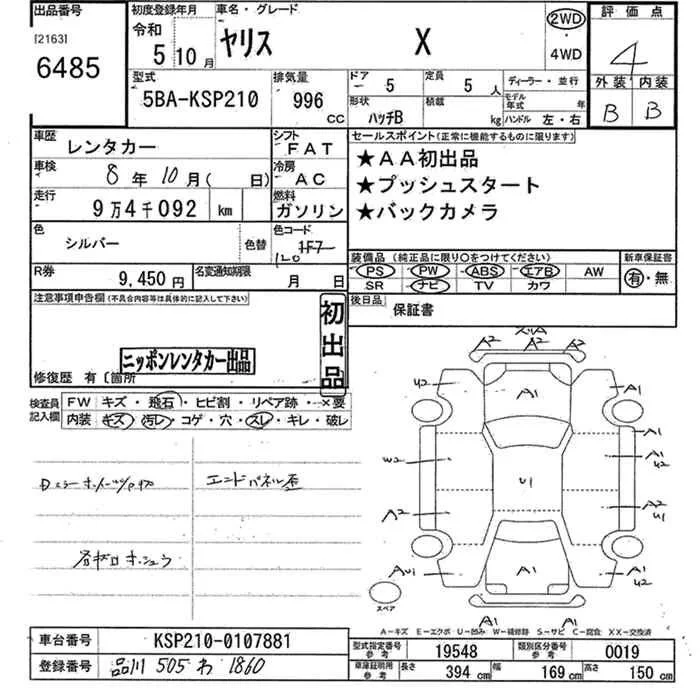 出品番号 初度登録年月 車名・グレード 2WD 評価点
[2163] 令和 ヤリス X ・ 4
6485 5 10月 4WD
型式 排気量 ドア 5 定員 5人 ディーラー・並行 外装 内装
5BA-KSP210 996 cc 形状 ハッチB 積載 kg モデル年式 年 B B
ハンドル 左・右
車歴 レンタカー シフト FAT セールスポイント(正常に機能するものに限ります)
車検 8年10月( 日) 冷房 AC ★AA初出品
走行 9万4千092 km 燃料 ガソリン ★プッシュスタート
★バックカメラ
色 シルバー 色替 色コード 1F7
120
装備品 (純正品に限り○をつけてください) 新車保証書
PS PW ABS エアB AW 有・無
SR ナビ TV カワ
R券 9,450円 名変通知期限 月 日
後日品 保証書
注意事項申告欄(不具合内容等は具体的に記入して下さい)
初出品
ニッポンレンタカー出品
修復歴 有〔箇所
検査員記入欄 FW キズ・飛石・ヒビ割・リペア跡・×要
内装 キズ・汚レ・コゲ・穴・スレ・キレ・破レ
エンドパネル歪
A2 A2 A2
U2 A1 A1
W2 A1 U2
U1
A2 A2 U1
A1 A1 U2
スペア
A1 A1
A-キズ E-エクボ U-凹み W-補修跡 S-サビ C-腐食 XX-交換済
車台番号 KSP210-0107881
登録番号 品川 505 わ 1860
型式指定番号 参考 19548 類別区分番号 参考 0019
車庫証明用 参考 長さ 394 cm 幅 169 cm 高さ 150 cm